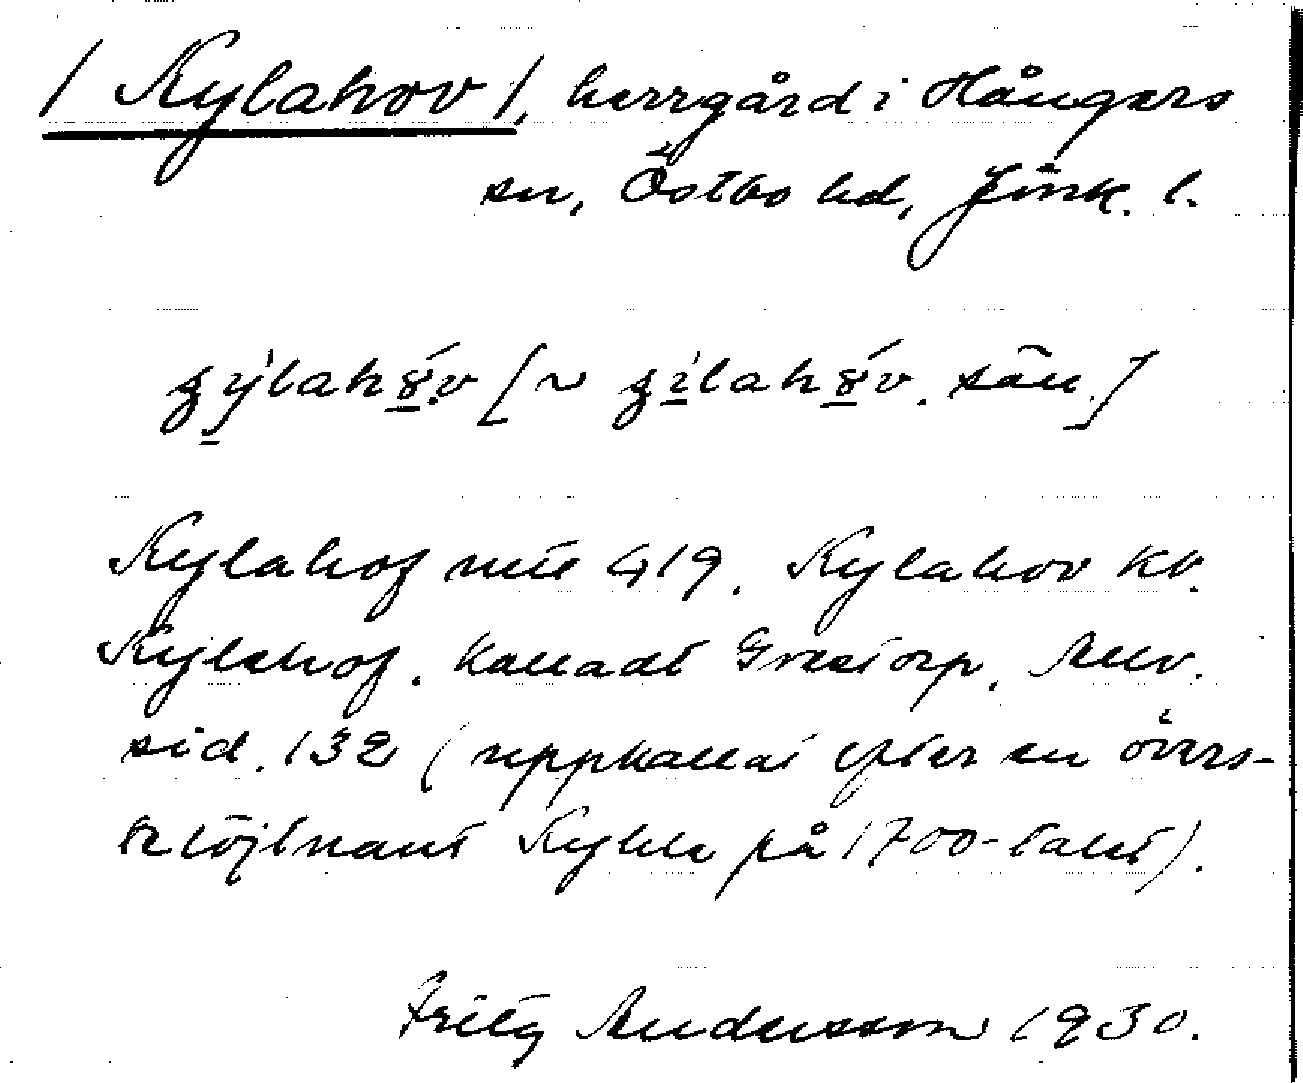 / Kylahov /, herrgård i Hångers
sn, Östbo hd, Jönk. l.
[~ sän.]
Kylahof 419. Kylahov kv.
Kylahof, kalladt Grastorp,
sid. 132 (uppkallat efter en övers-
te löjtnant Kyhle på 1700-talet).
Fritz Andersson 1930.